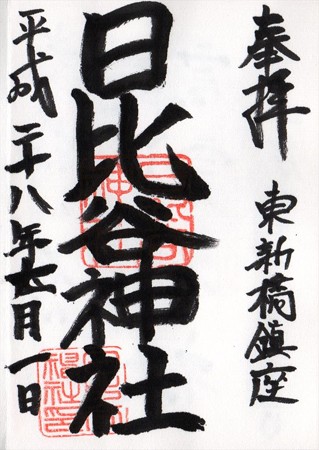 奉拝
東新橋鎮座
日比谷神社
平成二十八年七月一日